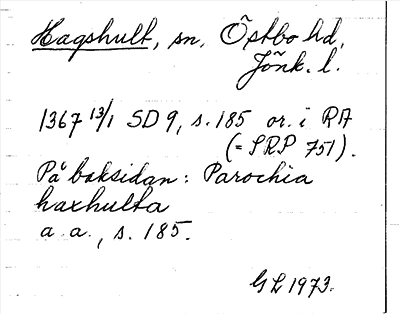 Hagshult, sn, Östbo hd,
Jönk. l.
1367 13/1 SD 9, s. 185 or. i RA
(= SRP 751).
På baksidan: Parochia
haxhulta
a. a., s. 185.
GL 1973.